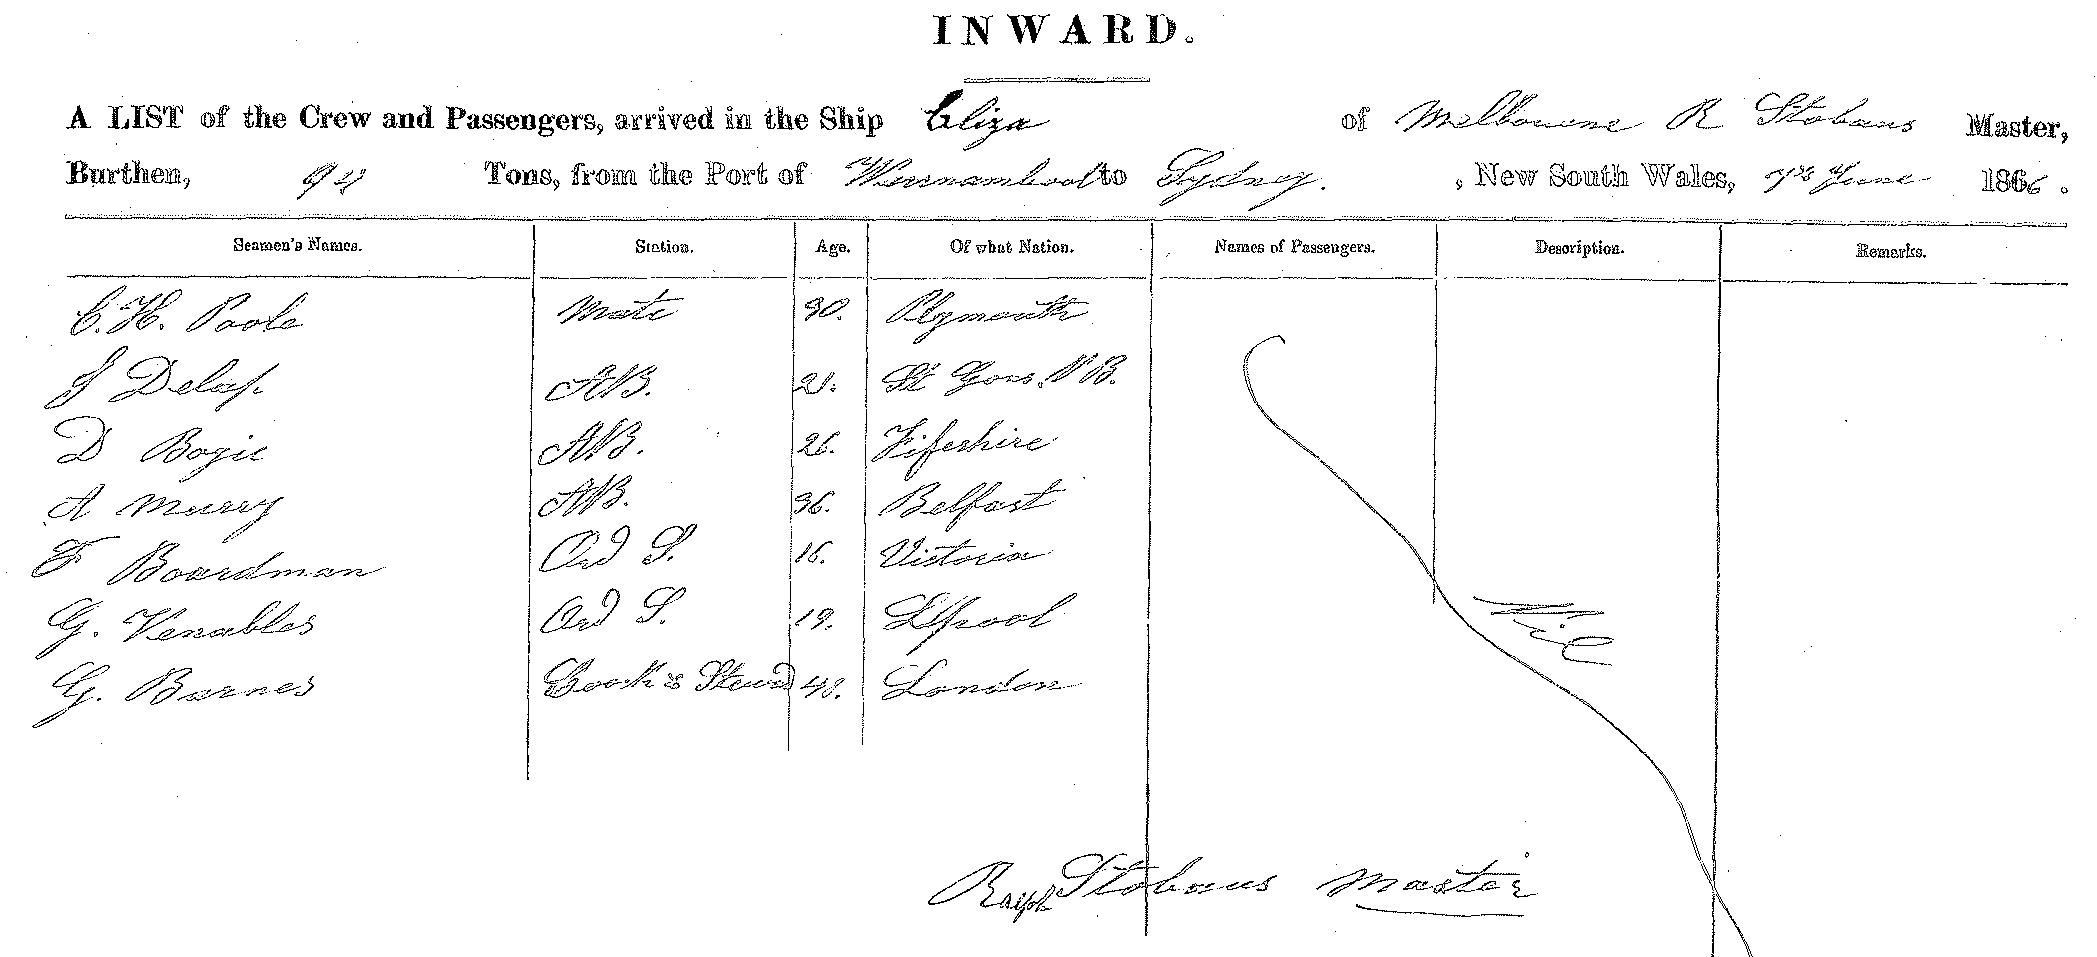 INWARD.
A LIST of the Crew and Passengers, arrived in the Ship Eliza of Melbourne R Stobaus Master,
Burthen, 94 Tons, from the Port of Warnambool to Sydney. , New South Wales, 7th June 1866.
Seamen's Names. Station. Age. Of what Nation. Names of Passengers. Description. Remarks.
C. H. Poole Mate 30. Plymouth
J Delap. AB. 21. St N B.
D Bogie AB. 26. Fifeshire
A Murry AB. 36. Belfast
F Boardman Ord S. 16. Victoria
G. Venables Ord S. 19. L'pool
Nil
G. Barnes Cook & Stewd 48. London
Ralph Stobaus Master